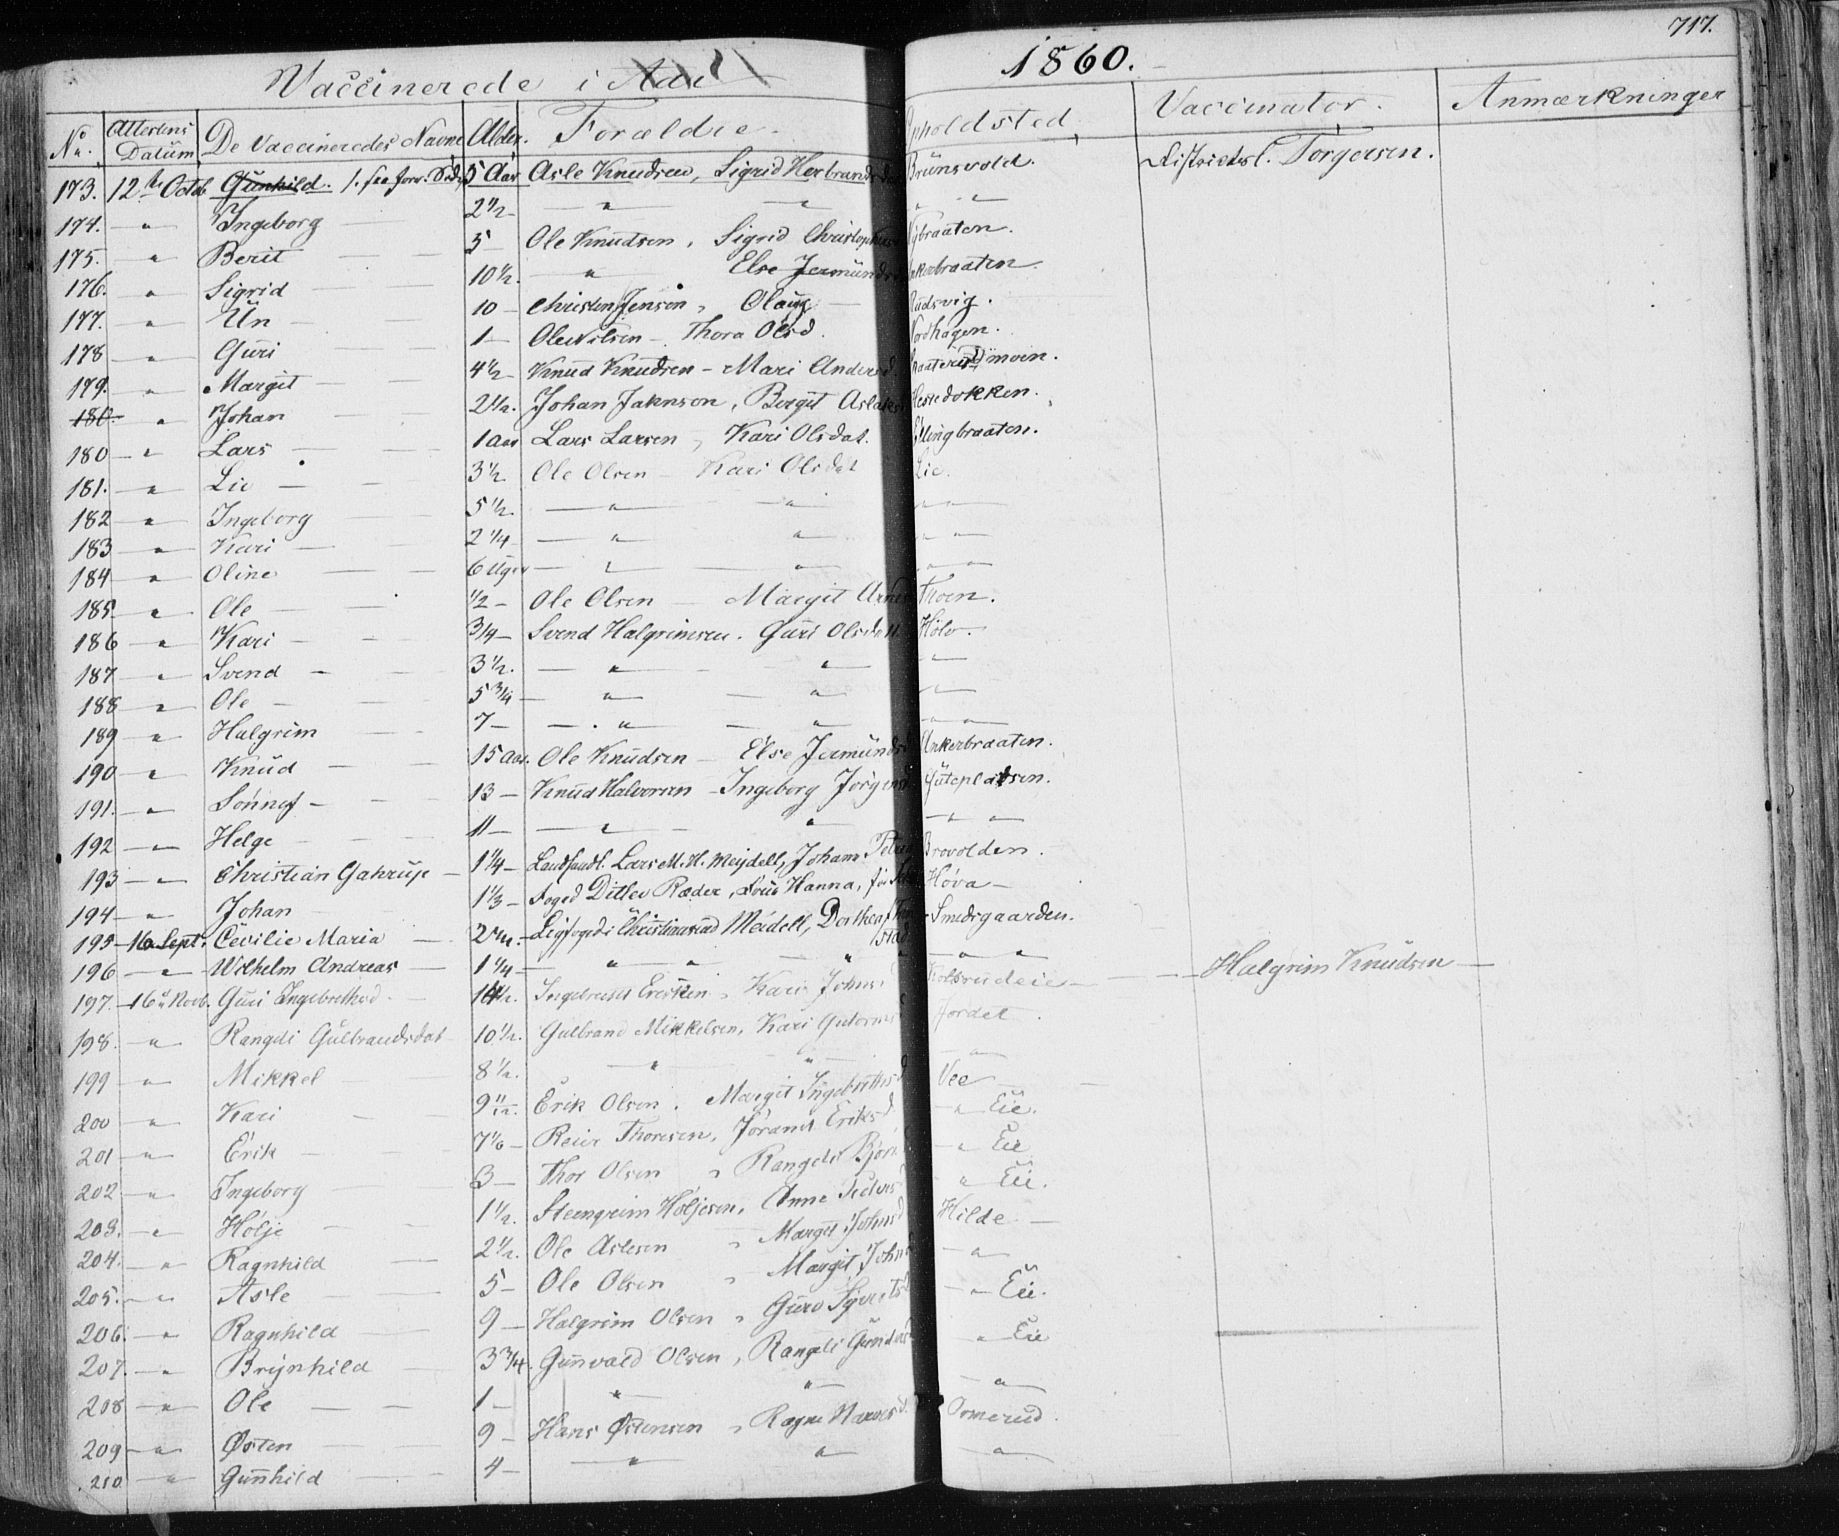 717.
Vaccinerede i Aar 1860.
No. Attestens Datum De Vaccineredes Navne Alder. Forældre. Opholdsted. Vaccinator. Anmærkninger
173. 12te Octob. Gunhild. f. see forr. Side 5 Aar Asle Knudsen, Sigrid Herbrandsd Brunsvold. Districtsl. Torgersen.
174. — " — Ingeborg — 2 1/2 — " — " — " —
175. — " — Berit — 5 Ole Knudsen, Sigrid Nybraaten.
176. — " — Sigrid — 10 1/2. — " Else Jermunds Ankerbraaten.
177. — " — Un — 10 — Christen Jenson, Olaug — Rudsvig.
178 — " — Guri — 1 — Ole Nilsen — Thora Olsd. Nordhagen.
179. — " — Margit — 4 1/2 — Knud Knudsen — Mari Andersd. moen.
180. — " — Johan — 2 1/2. Johan Jahnson, Bergit Aslaks Hesledokken.
180 — " — Lars — 1 aar Lars Larsen, Kari Olsdat. Ellingbraaten.
181. — " — Liv — 3 1/2 Ole Olsen — Kari Olsdat Lie.
182 — " — Ingeborg — 5 1/2. — " — " — " —
183 — " — Kari — 2 1/4 — " — " — " —
184 — " — Oline — 6 Uger — " — " — " —
185 — " — Ole — 1/2 — Ole Olsen — Margit Arnes Thoen.
186 — " — Kari — 3/4 — Svend Halgrimsen. Guri Olsdatt. Holo.
187 — " — Svend — 3 1/2. — " — " — " —
188 — " — Ole — 5 3/4 — " — " — " —
189 — " — Halgrim — 7 — " — " — " —
190 — " — Knud — 15 aar. Ole Knudsen — Else Jermunds Ankerbraaten.
191. — " — Sönnef — 13 — Knud Halvorsen — Ingeborg Jörgens Gutepladsen.
192 — " — Helge — 11 — " — " — " —
193 — " — Christian Gahrup — 1 1/4 — Landhandl. Lars M. H. Meydell, Johann Petrea Brovolden.
194 — " — Johan — 1 1/3 — Foged Ditlev Ræder, Louis Hanna, Hóva —
195 — 16 Sept. Cecilie Maria — Christianssund Meidell, Dorthea Smedsgaarden.
196 — " — Wilhelm Andreas — 1 1/4 — " — " — " —
197. — 16 Novb. Guri Ingebrethsd. — 14 1/2. Ingebreth Ericksen, Kari Johns Kolsrudeie — Halgrim Knudsen —
198. — " — Rangdi Gulbrandsdat 10 1/2. Gulbrand Mikkelsen, Kari Gutorms Jordet.
199 — " — Mikkel — 8 1/2. — " — " — " —
200 — " — Kari — 9 11/12. Erik Olsen. Margit Ingebrethsd Vee —
201 — " — Erik — 7 1/6 — Reier Thoresen, Jörand Eriksd. — " Eie.
202 — " — Ingeborg — 3 — Thor Olsen, Rangdi Björns — " Eie
203. — " — Holje — 1 1/2. Steengrim Holjesen, Anne Peders — " Eie.
204. — " — Ragnhild — 2 1/2. Ole Aslesen, Margit Johnsd Hilde —
205. — " — Asle — 5 — Ole Olsen, Margit Johns — " —
206. — " — Ragnhild — 9 — Halgrim Olsen, Guro Syverts — " Eie.
207. — " — Brynhild — 3 3/4. Gunvald Olsen, Rangdi Gunders — " Eie
208 — " — Ole — 1 — " — " — " —
209 — " — Østen — 9 — Hans Østensen, Ragne Narvesd. Ormerud.
210 — " — Gunhild — 4 — " — " — " —